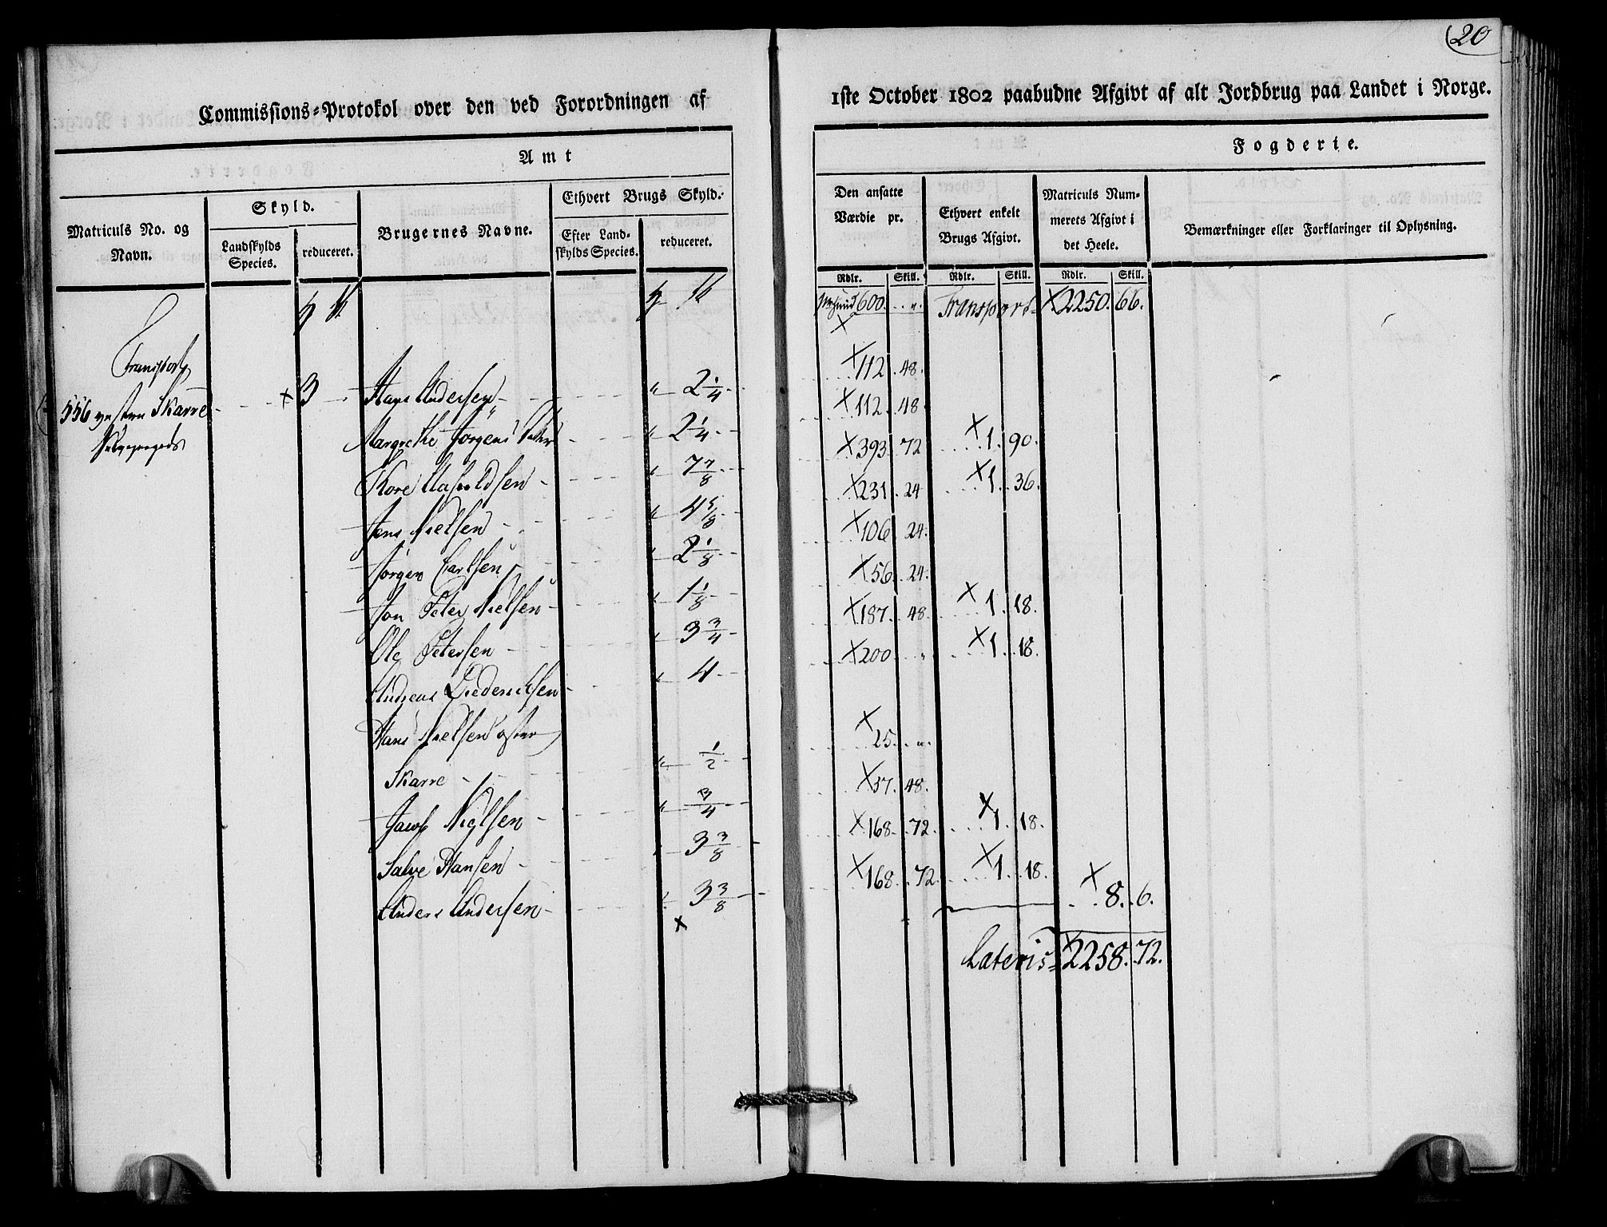 20
Commissions-Protokol over den ved Forordningen af 1ste October 1802 paabudne Afgivt af alt Jordbrug paa Landet i Norge.
Amt
Fogderie.
Matriculs No. og Navn.
Skyld.
Landskylds Species.
reduceret.
Brugernes Navne.
Ethvert Brugs Skyld.
Efter Landskylds Species.
reduceret.
Den ansatte Værdie pr.
Rdlr. Skill.
Ethvert enkelt Brugs Afgivt.
Rdlr. Skill.
Matriculs Nummerets Afgivt i det Heele.
Rdlr. Skill.
Bemærkninger eller Forklaringer til Oplysning.
600 Transport 2250. 66.
Transport
556 3 Hans Andersen " 2 1/4 112 48.
Skarre Margrethe Jørgens " 2 1/4 112 48
7 7/8 393 72 1. 90.
Jens Nielsen " 4 5/8 231 24 1. 36.
Jørgen Carlsen " 2 1/8 106 24.
Jon Peter Nielsen " 1 1/8 56 24.
Ole Petersen " 3 3/4 187 48 1. 18.
Andreas Diederichsen " 4 200 " 1 18.
Hans Nielsen
Skarre " 1/2 25 "
Jacob Nielsen " 3/4 37. 48.
Salve Hansen " 3 3/8 168. 72. 1. 18.
Anders Andersen " 3 3/8 168. 72. 1. 18.
8. 6.
Lateris 2258. 72.